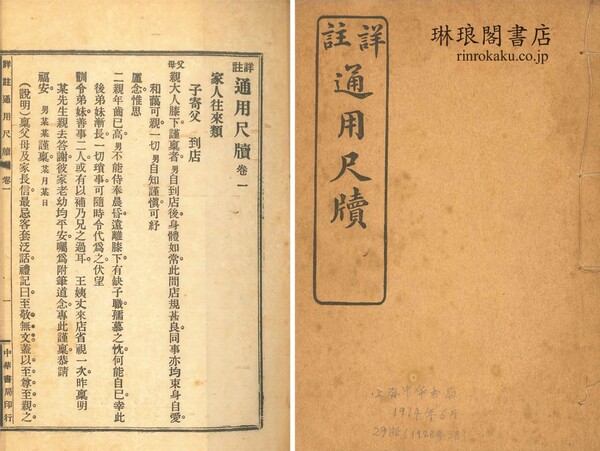 琳琅閣書店
rinrokaku.co.jp
詳註
通用尺牘
上海中華書局
詳註通用尺牘卷一
家人往來類
子寄父 到店
父母親大人膝下謹稟者男自到店後身體如常此間店規甚良同事亦均束身自愛
和藹可親一切男自知謹愼可紓
廑念惟思
二親年齒已高男不能侍奉晨昏遠離膝下有缺子職孺慕之忱何能自已幸此
後弟妹漸長一切瑣事可隨時令代爲之伏望
訓令弟妹善事二人或有以補乃兄之過耳 王姨丈來店省視一次昨稟明
某先生親去答謝彼家老幼均平安囑爲附筆道念專此謹稟恭請
福安 男某某謹稟某月某日
(說明)稟父母及家長信最忌客套泛話禮記曰至敬無文蓋以至尊至親之
詳註通用尺牘 卷一
一
中華書局印行